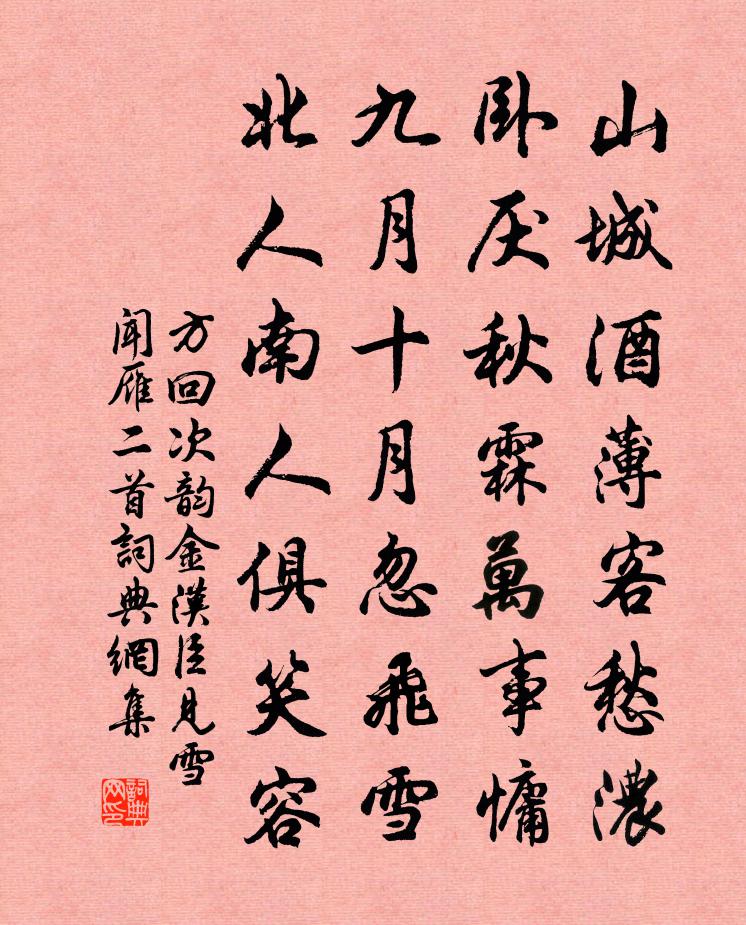 山城酒薄客愁濃
卧厌秋霖萬事慵
九月十月忽飛雪
北人南人俱笑容
方回次韵金漢臣見雪
聞雁二首詞典網集
詞典網印